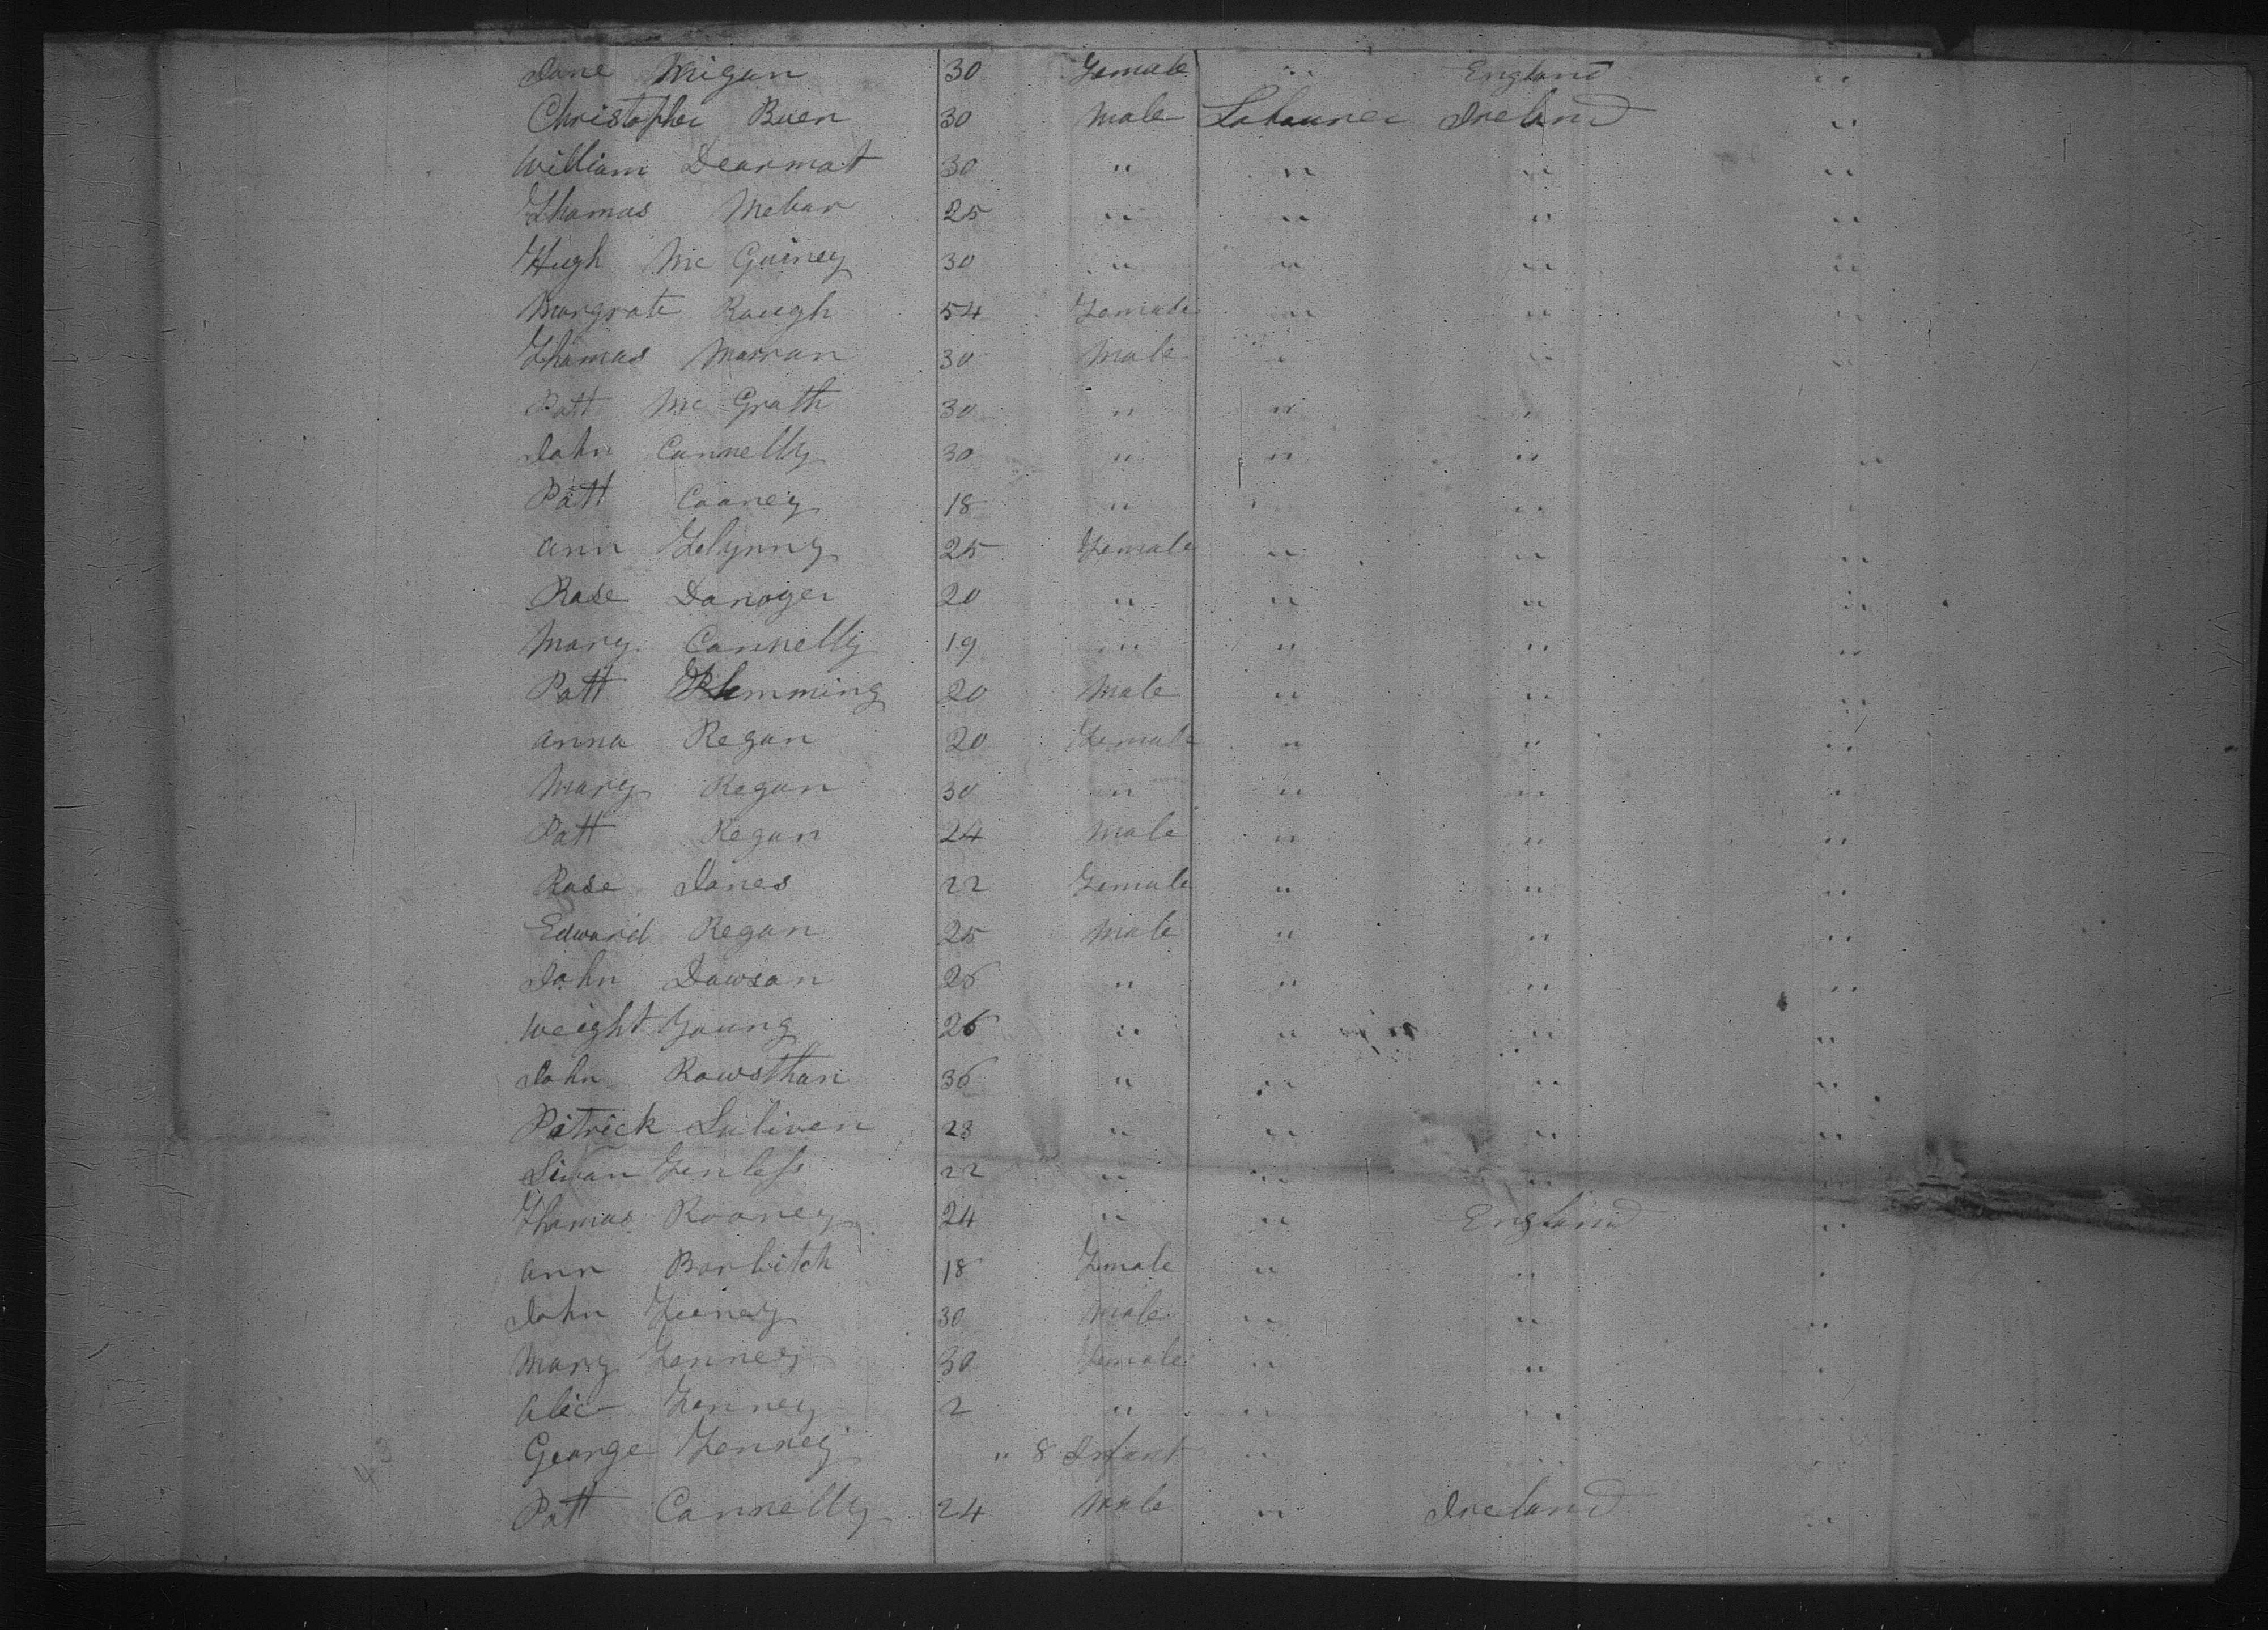 Jane Migan 30 Female " England "
Christopher Buen 30 Male Labourer Ireland "
William Dearmat 30 " " " "
Thomas Mebar 25 " " " "
Hugh Mc Guiney 30 " " " "
Margrate Raugh 54 Female " " "
Thomas Marran 30 Male " " "
Patt Mc Grath 30 " " "
John Connelly 30 " " " "
Patt Cooney 18 " " " "
Ann Flynny 25 Female " " "
Rose Danoger 20 " " " "
Mary Connelly 19 " " " "
Patt Flemming 20 Male " " "
Anna Regan 20 Female " " "
Mary Regan 30 " " " "
Patt Regan 24 Male " " "
Rose Janes 22 Female " " "
Edward Regan 25 Male " " "
John Dawson 26 " " " "
Weight Young 26 " " " "
John Rowsthan 36 " " " "
Patrick Suliven 23 " " " "
22 " " " "
Thomas Rooney 24 " " England "
Ann Barbitch 18 Female " " "
John Feeney 30 Male " " "
Mary Fenney 30 Female " " "
Alic Fenney 2 " " " "
George Fenney " 8 Infant " " "
Patt Connelly 24 Male " Ireland "
43